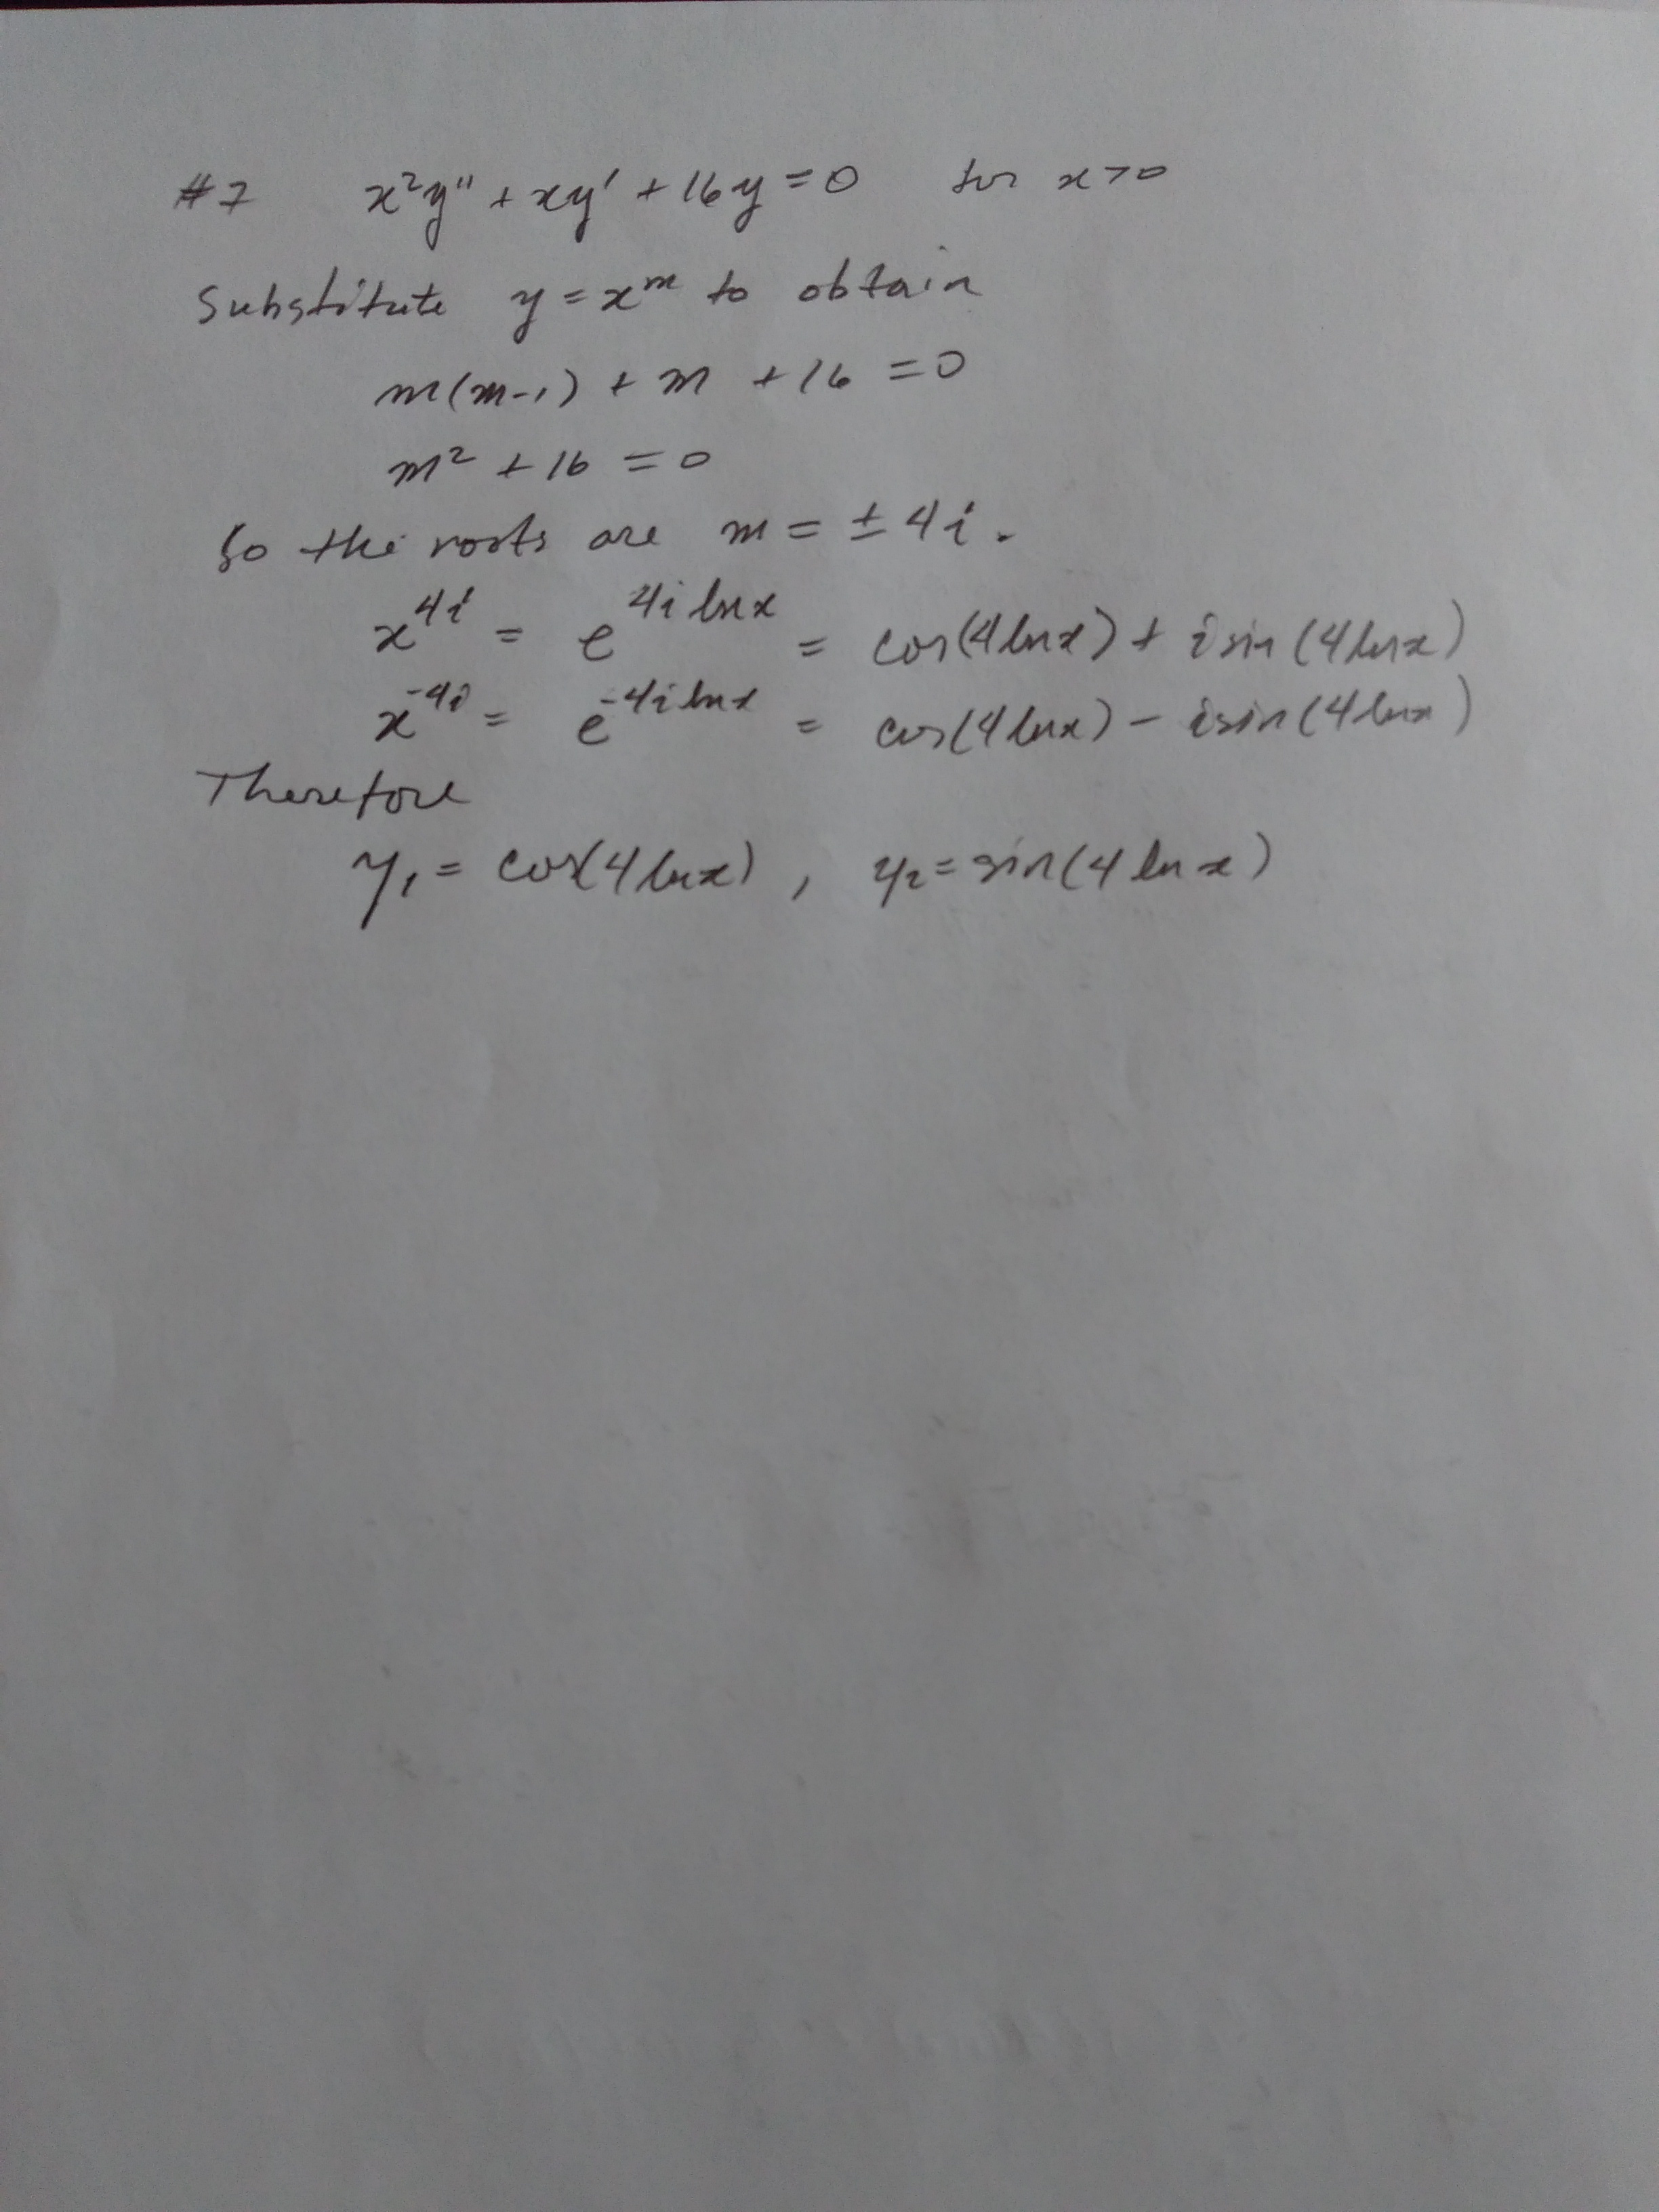 #7 x²y" + xy' + 16y = 0 for x>0
Substitute y = xᵐ to obtain
m(m-1) + m + 16 = 0
m² + 16 = 0
So the roots are m = ± 4i.
x^{4i} = e^{4i ln x} = cos(4 ln x) + i sin (4 ln x)
x^{-4i} = e^{-4i ln x} = cos(4 ln x) - i sin (4 ln x)
Therefore
y₁ = cos(4 ln x) , y₂ = sin(4 ln x)